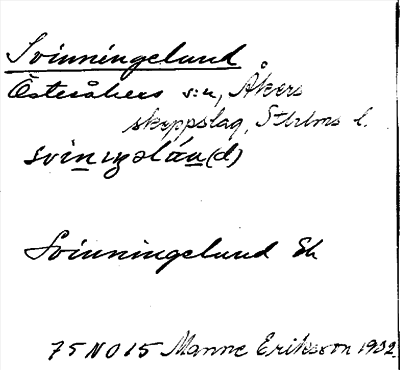 Svinningelund
Österåkers s:n, Åkers
skeppslag, Sthlms l.
Svinningelund Ek
75 NO 15 Manne Eriksson 1932